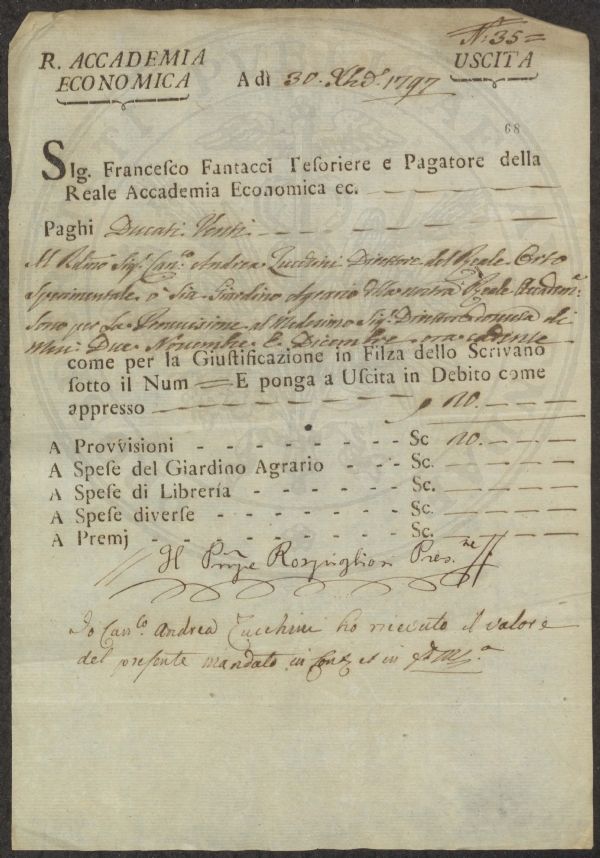 N.º 35 =
R. ACCADEMIA
ECONOMICA
A dì 30. Xbre. 1797
USCITA
68
SIg. Francesco Fantacci Tesoriere e Pagatore della
Reale Accademia Economica ec.
Paghi Ducati Venti
Al Rdmo. Sigr. Canco. Andrea Zucchini Direttore del Reale Orto
Sperimentale o sia Giardino Agrario della nostra Reale Accadema.
Sono per La Provvisione al Medesimo Sigr. Direttore dovuta di
Mesi Due Novembre E Dicembre ora cadente
come per la Giuſtificazione in Filza dello Scrivano
ſotto il Num = E ponga a Uſcita in Debito come
appresso 20.
A Provviſioni - - - - - - - - - Sc 20.
A Speſe del Giardino Agrario - - - Sc.
A Speſe di Librerìa - - - - - - Sc.
A Speſe diverſe - - - - - - - Sc.
A Premj - - - - - - - - - Sc.
Il Prnpe Rospigliosi Presne.
Io Canco. Andrea Zucchini ho ricevuto il valore
del presente mandato in Conti et in